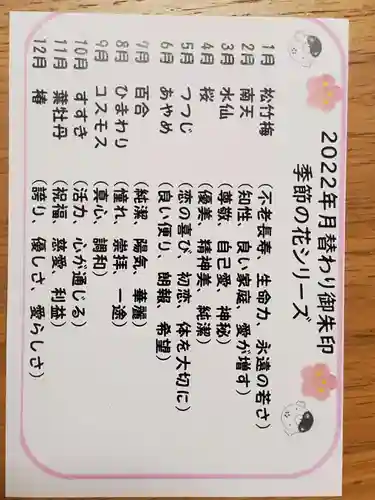 2022年月替わり御朱印
季節の花シリーズ
1月 松竹梅 (不老長寿、生命力、永遠の若さ)
2月 南天 (知性、良い家庭、愛が増す)
3月 水仙 (尊敬、自己愛、神秘)
4月 桜 (優美、精神美、純潔)
5月 つつじ (恋の喜び、初恋、体を大切に)
6月 あやめ (良い便り、朗報、希望)
7月 百合 (純潔、陽気、華麗)
8月 ひまわり (憧れ、崇拝、一途)
9月 コスモス (真心、調和)
10月 すすき (活力、心が通じる)
11月 葉牡丹 (祝福、慈愛、利益)
12月 椿 (誇り、優しさ、愛らしさ)